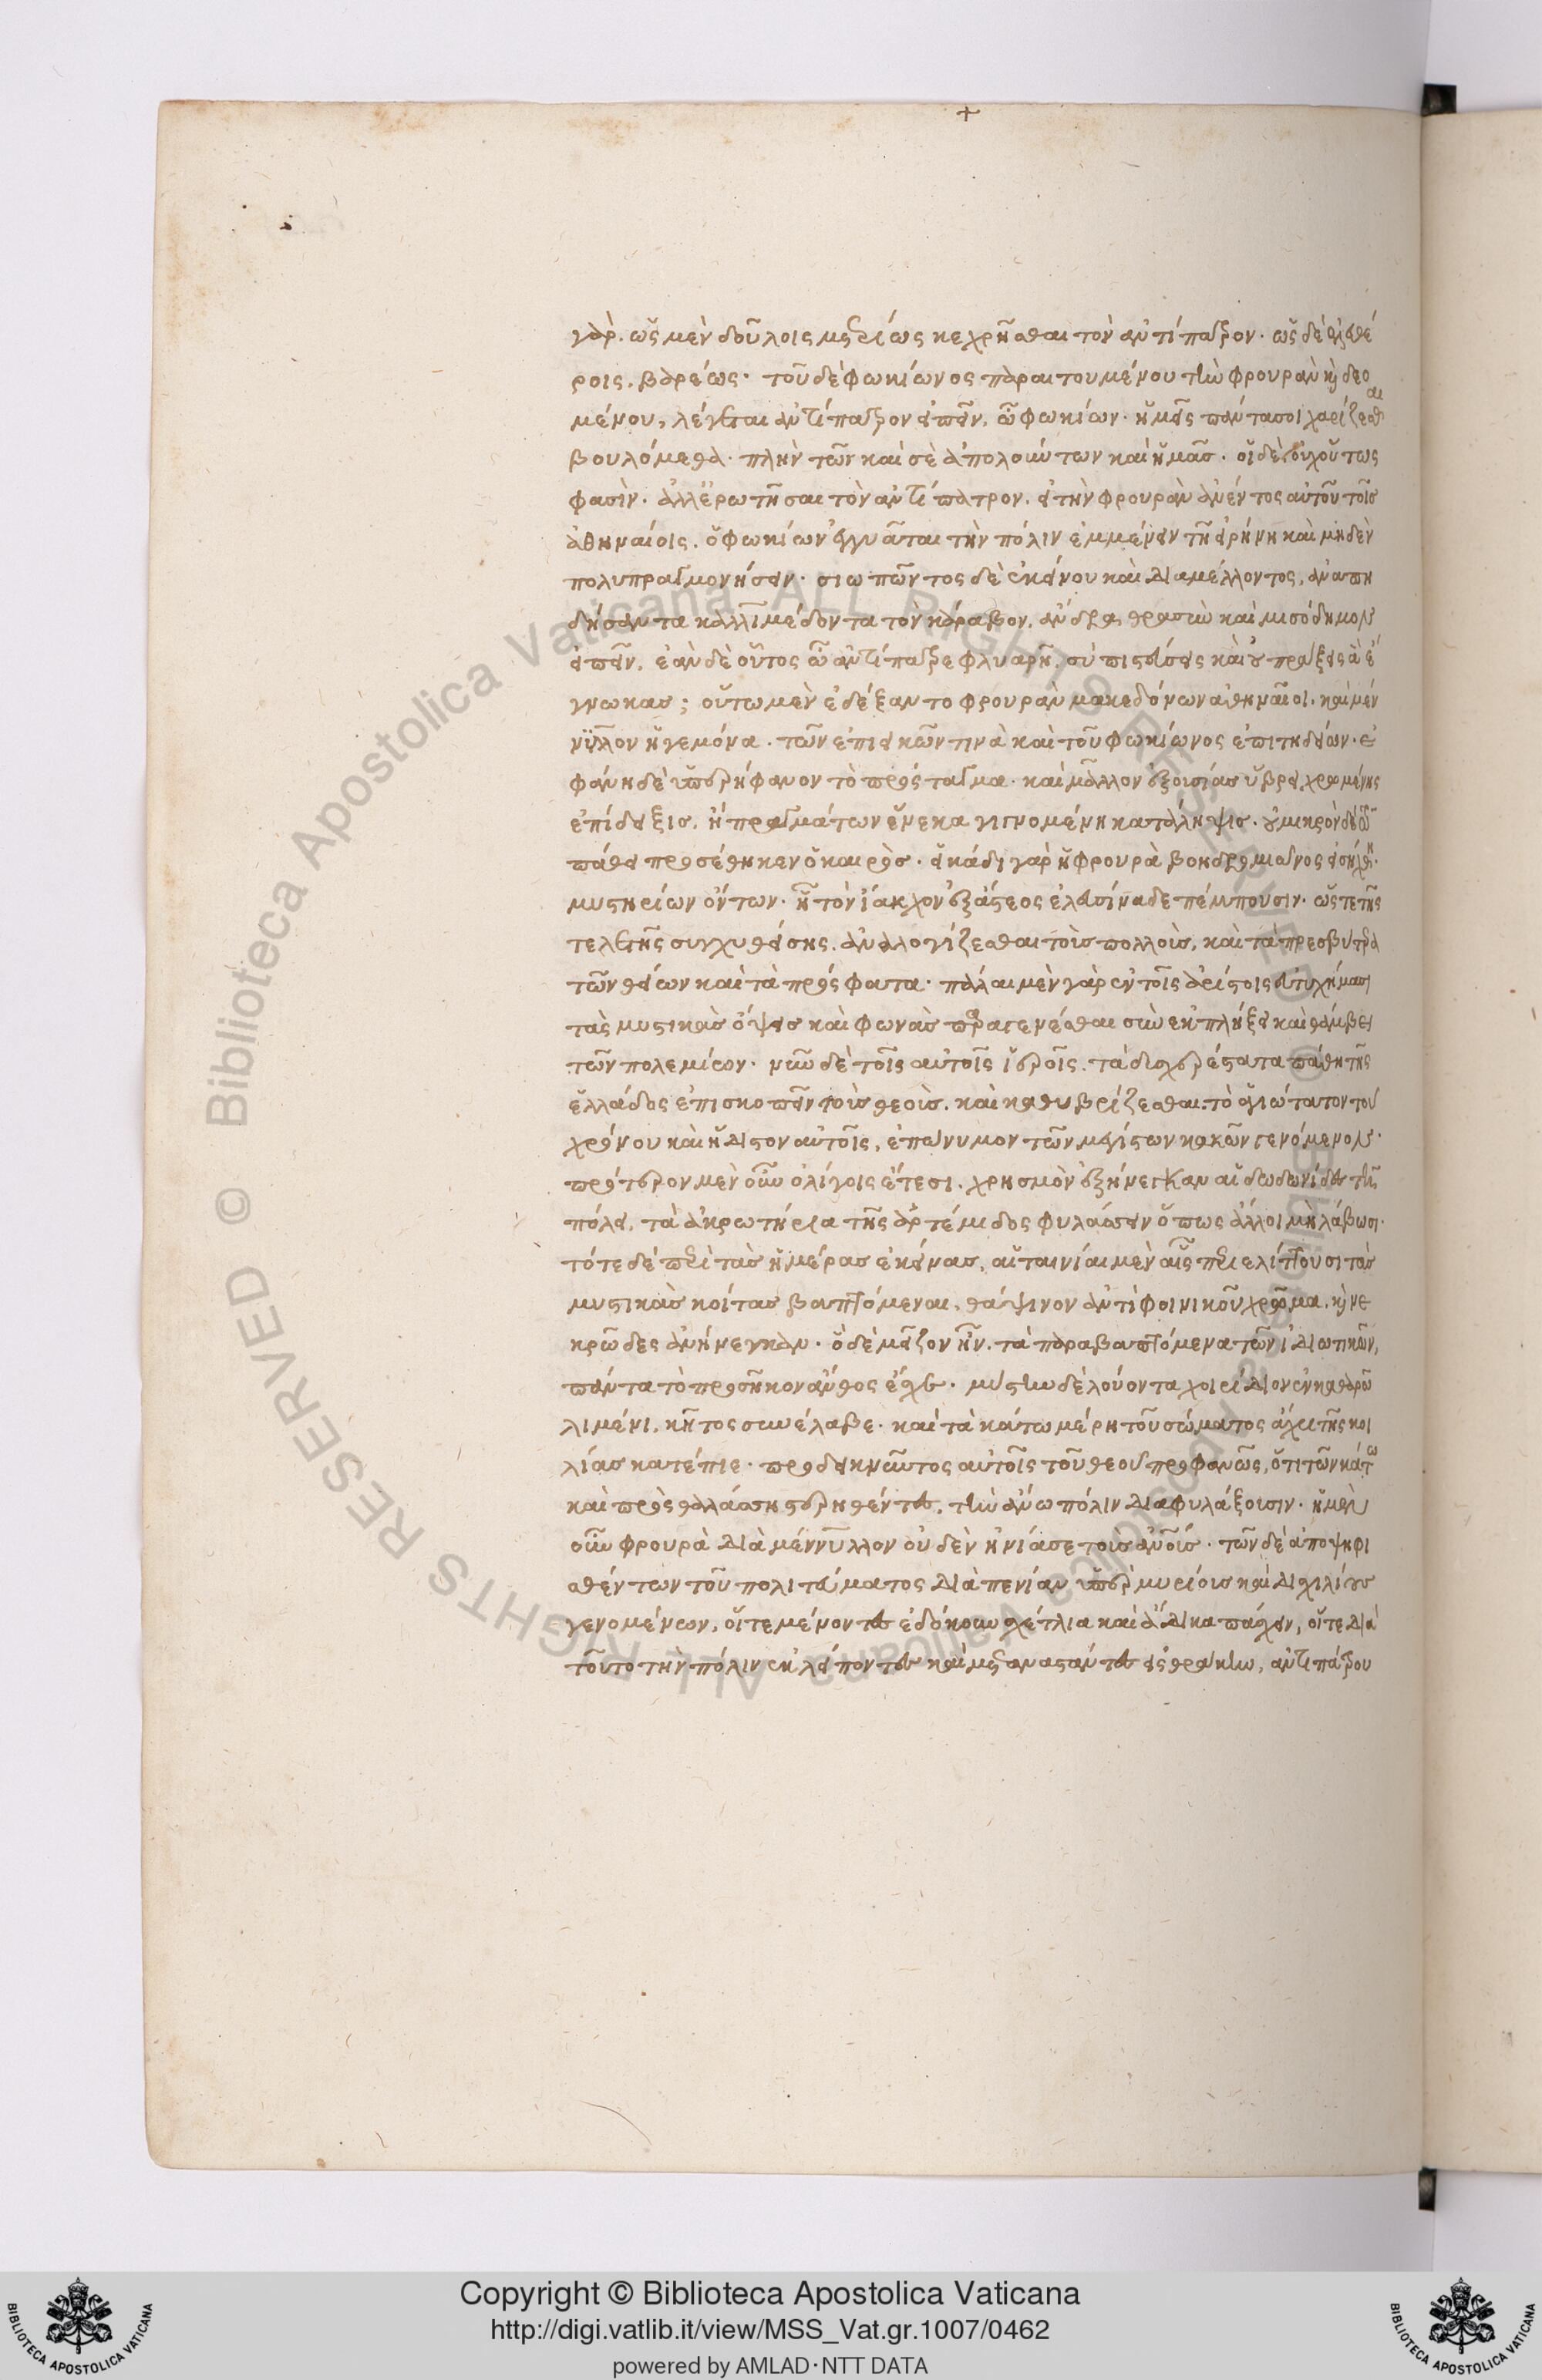 γὰρ. ὡς μὲν δούλοις μετρίως κεχρῆσθαι τὸν ἀντίπατρον. ὡς δὲ ἐλευθέ
ροις, βαρέως. τοῦ δὲ φωκίωνος παραιτουμένου τὴν φρουρὰν καὶ δεο
μένου, λέγεται ἀντίπατρον εἰπεῖν, ὦ φωκίων. ἡμεῖς πάντα σοι χαρίζεσθαι
βουλόμεθα. πλὴν τῶν καὶ σὲ ἀπολούντων καὶ ἡμᾶς. οἱ δὲ οὐχ οὕτως
φασὶν. ἀλλ' ἐρωτῆσαι τὸν ἀντίπατρον, εἰ τὴν φρουρὰν ἀνέντος αὐτοῦ τοῖς
ἀθηναίοις, ὁ φωκίων ἐγγυᾶται τὴν πόλιν ἐμμένειν τῇ εἰρήνῃ καὶ μηδὲν
πολυπραγμονήσειν. σιωπῶντος δὲ ἐκείνου καὶ διαμέλλοντος, ἀναπη
δήσαντα καλλιμέδοντα τὸν κάραβον, ἄνδρα θρασὺν καὶ μισόδημον
εἰπεῖν, ἐὰν δὲ οὗτος ὦ ἀντίπατρε φλυαρῇ, σὺ πιστεύσεις καὶ οὐ πράξεις ἃ ἔ
γνωκας; οὕτω μὲν ἐδέξαντο φρουρὰν μακεδόνων ἀθηναῖοι, καὶ μέν
νυλλον ἡγεμόνα. τῶν ἐπιεικῶν τινὰ καὶ τοῦ φωκίωνος ἐπιτηδείων. ἐ
φάνη δὲ ὑπερήφανον τὸ πρόσταγμα. καὶ μᾶλλον ἐξουσίας ὕβρει χρωμένης
ἐπίδειξις, ἢ πραγμάτων ἕνεκα γιγνομένη κατάληψις. οὐ μικρὸν δὲ τῷ
πάθει προσέθηκεν ὁ καιρός. εἰκάδι γὰρ ἡ φρουρὰ βοηδρομιῶνος εἰσήχθη.
μυστηρίων ὄντων. ᾗ τὸν ἴακχον ἐξ ἄστεος ἐλευσίναδε πέμπουσιν. ὥστε τῆς
τελετῆς συγχυθείσης, ἀναλογίζεσθαι τοὺς πολλοὺς, καὶ τὰ πρεσβύτερα
τῶν θείων καὶ τὰ πρόσφατα. πάλαι μὲν γὰρ ἐν τοῖς ἀρίστοις εὐτυχήμασι
τὰς μυστικὰς ὄψεις καὶ φωνὰς παραγενέσθαι σὺν ἐκπλήξει καὶ θάμβει
τῶν πολεμίων. νῦν δὲ τοῖς αὐτοῖς ἱεροῖς, τὰ δυσχερέστατα πάθη τῆς
ἑλλάδος ἐπισκοπεῖν τοὺς θεοὺς, καὶ καθυβρίζεσθαι τὸ ἁγιώτατον τοῦ
χρόνου καὶ ἥδιστον αὐτοῖς, ἐπώνυμον τῶν μεγίστων κακῶν γενόμενον.
πρότερον μὲν οὖν ὀλίγοις ἔτεσι, χρησμὸν ἐξήνεγκαν αἱ δωδωνίδες τῇ
πόλει, τὰ ἀκρωτήρια τῆς ἀρτέμιδος φυλάσσειν ὅπως ἄλλοι μὴ λάβωσι.
τότε δὲ περὶ τὰς ἡμέρας ἐκείνας, αἱ ταινίαι μὲν αἷς περιελίττουσι τὰς
μυστικὰς κοίτας βαπτόμεναι, θάψινον ἀντὶ φοινικοῦ χρῶμα, καὶ νε
κρῶδες ἀνήνεγκαν. ὃ δὲ μεῖζον ἦν, τὰ παραβαπτόμενα τῶν ἰδιωτικῶν,
πάντα τὸ προσῆκον ἄνθος ἔσχε. μύστην δὲ λούοντα χοιρίδιον ἐν καθαρῷ
λιμένι, κῆτος συνέλαβε. καὶ τὰ κάτω μέρη τοῦ σώματος ἄχρι τῆς κοι
λίας κατέπιε. προδεικνῦντος αὐτοῖς τοῦ θεοῦ προφανῶς, ὅτι τῶν κάτω
καὶ πρὸς θαλάσσῃ στερηθέντες, τὴν ἄνω πόλιν διαφυλάξουσιν. ἡ μὲν
οὖν φρουρὰ διὰ μέννυλλον οὐδὲν ἠνίασε τοὺς ἀνους. τῶν δὲ ἀποψηφι
σθέντων τοῦ πολιτεύματος διὰ πενίαν ὑπὲρ μυρίους καὶ δισχιλίους
γενομένων, οἵ τε μένοντες ἐδόκουν σχέτλια καὶ ἄδικα πάσχειν, οἵ τε διὰ
τοῦτο τὴν πόλιν ἐκλείποντες καὶ μεταναστάντες εἰς θράκην, ἀντιπάτρου
Copyright © Biblioteca Apostolica Vaticana
http://digi.vatlib.it/view/MSS_Vat.gr.1007/0462
powered by AMLAD·NTT DATA